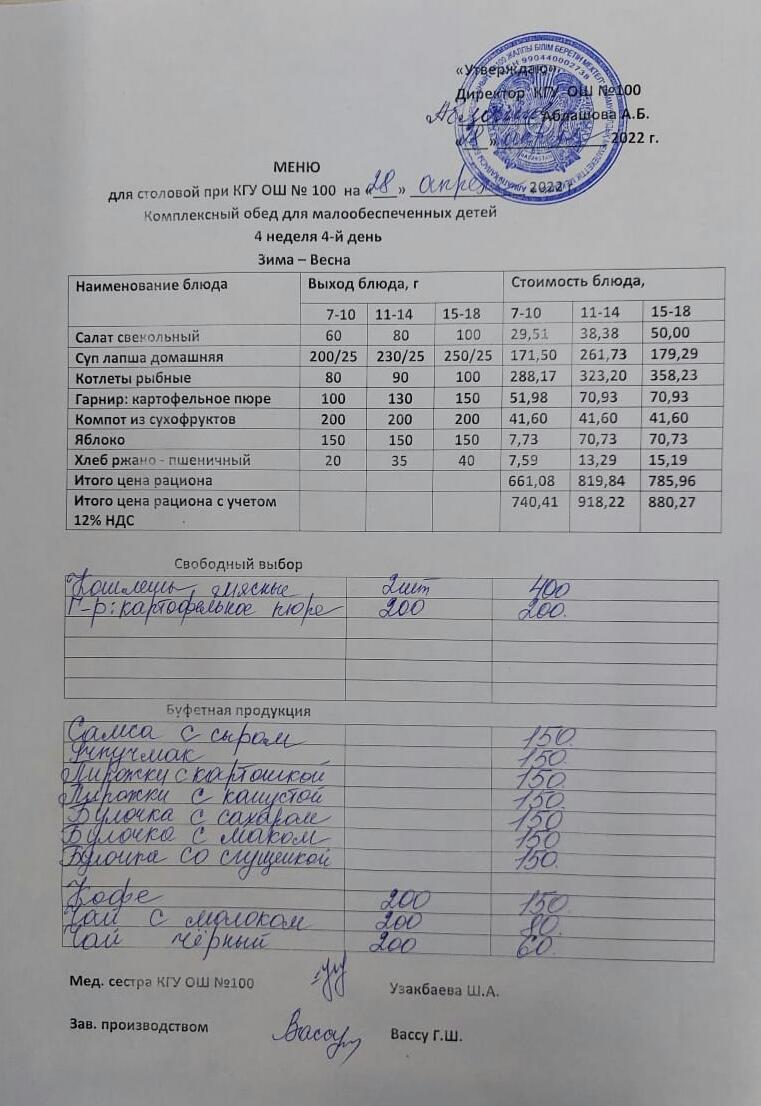 «Утверждаю»
Директор КГУ ОШ №100
Аблашова А.Б.
«28» апрель 2022 г.
МЕНЮ
для столовой при КГУ ОШ № 100 на «28» апрель 2022 г
Комплексный обед для малообеспеченных детей
4 неделя 4-й день
Зима – Весна
Наименование блюда Выход блюда, г Стоимость блюда,
7-10 11-14 15-18 7-10 11-14 15-18
Салат свекольный 60 80 100 29,51 38,38 50,00
Суп лапша домашняя 200/25 230/25 250/25 171,50 261,73 179,29
Котлеты рыбные 80 90 100 288,17 323,20 358,23
Гарнир: картофельное пюре 100 130 150 51,98 70,93 70,93
Компот из сухофруктов 200 200 200 41,60 41,60 41,60
Яблоко 150 150 150 7,73 70,73 70,73
Хлеб ржано - пшеничный 20 35 40 7,59 13,29 15,19
Итого цена рациона 661,08 819,84 785,96
Итого цена рациона с учетом 740,41 918,22 880,27
12% НДС
Свободный выбор
мясные 2шт 400
Г-р: картофельное пюре 200 200.
Буфетная продукция
Самса с сыром 150.
Учпучмак 150.
Пирожки с картошкой 150.
Пирожки с капустой 150.
Булочка с сахаром 150
Булочка с маком 150
Булочка со сгущенкой 150.
Кофе 200 150.
Чай с молоком 200 80.
Чай чёрный 200 60.
Мед. сестра КГУ ОШ №100 Узакбаева Ш.А.
Зав. производством Вассу Вассу Г.Ш.